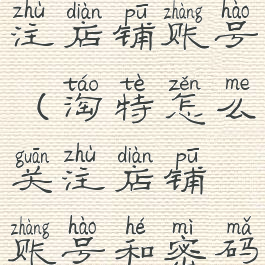 zhù diàn pū zhàng hào
注店铺账号
táo tè zěn me
（淘特怎么
guān zhù diàn pū
关注店铺
zhàng hào hé mì mǎ
账号和密码